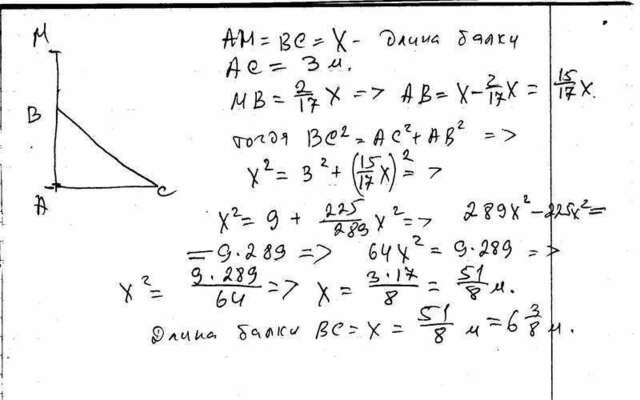 M
B
A
C
AM = BC = X - Длина балки
AC = 3 м.
MB = 2/17 X => AB = X - 2/17 X = 15/17 X.
тогда BC² = AC² + AB² =>
X² = 3² + (15/17 X)² =>
X² = 9 + 225/289 X² => 289X² - 225X² =
= 9·289 => 64X² = 9·289 =>
X² = 9·289/64 => X = 3·17/8 = 51/8 м.
Длина балки BC = X = 51/8 м = 6 3/8 м.